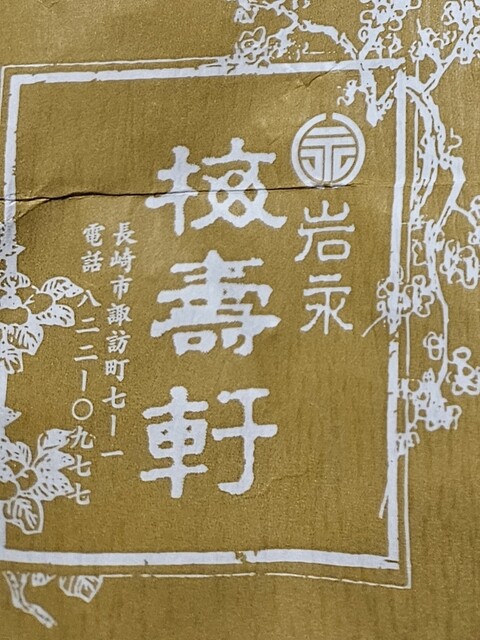 岩永
梅壽軒
長崎市諏訪町七ー一
電話 八二二ー〇九七七